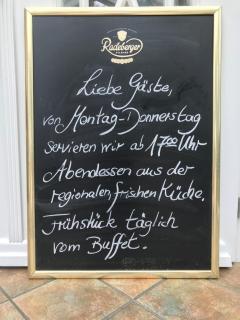 Radeberger
PILSNER
Liebe Gäste,
von Montag-Donnerstag
servieren wir ab 17⁰⁰ Uhr
Abendessen aus der
regionalen, frischen Küche.
Frühstück täglich
vom Buffet.